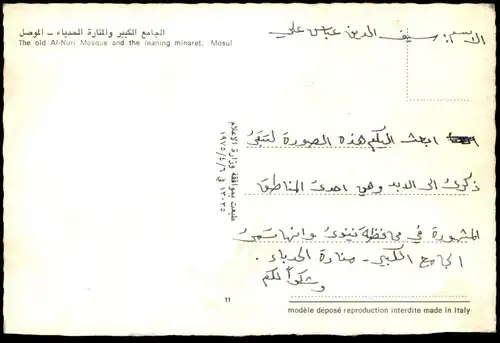 الجامع الكبير والمنارة الحدباء ــ الموصل
The old Al-Nuri Mosque and the leaning minaret, Mosul
الاسم: سيف الدين عباس علي
ابعث اليكم هذه الصورة لتبقى
ذكرى الى الابد وهي احدى المناطق
المشهورة في محافظة نينوى وانها تسمى
الجامع الكبير - منارة الحدباء .
وشكراً لكم
طبعت بموافقة وزارة الاعلام
١٣٠٣٥ في ١٩٧٥/٤/٦
11
modèle déposé reproduction interdite made in Italy